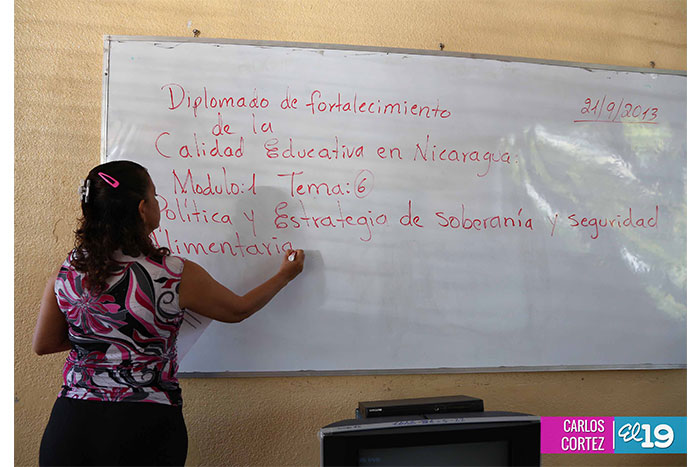 Diplomado de fortalecimiento
21/9/2013
de la
Calidad Educativa en Nicaragua.
Modulo:1 Tema:6
Política y Estrategia de soberanía y seguridad
alimentaria
CARLOS
CORTEZ
El 19